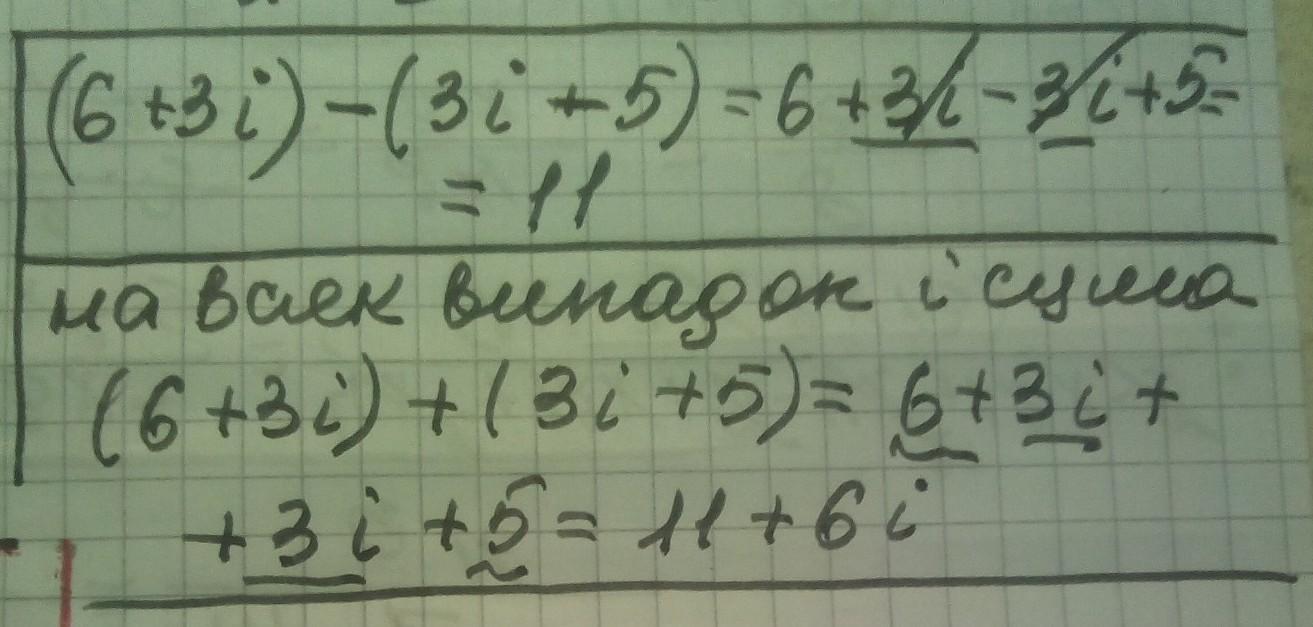 (6 + 3i) - (3i + 5) = 6 + 3i - 3i + 5 =
= 11
на всяк випадок і сума
(6 + 3i) + (3i + 5) = 6 + 3i +
+ 3i + 5 = 11 + 6i